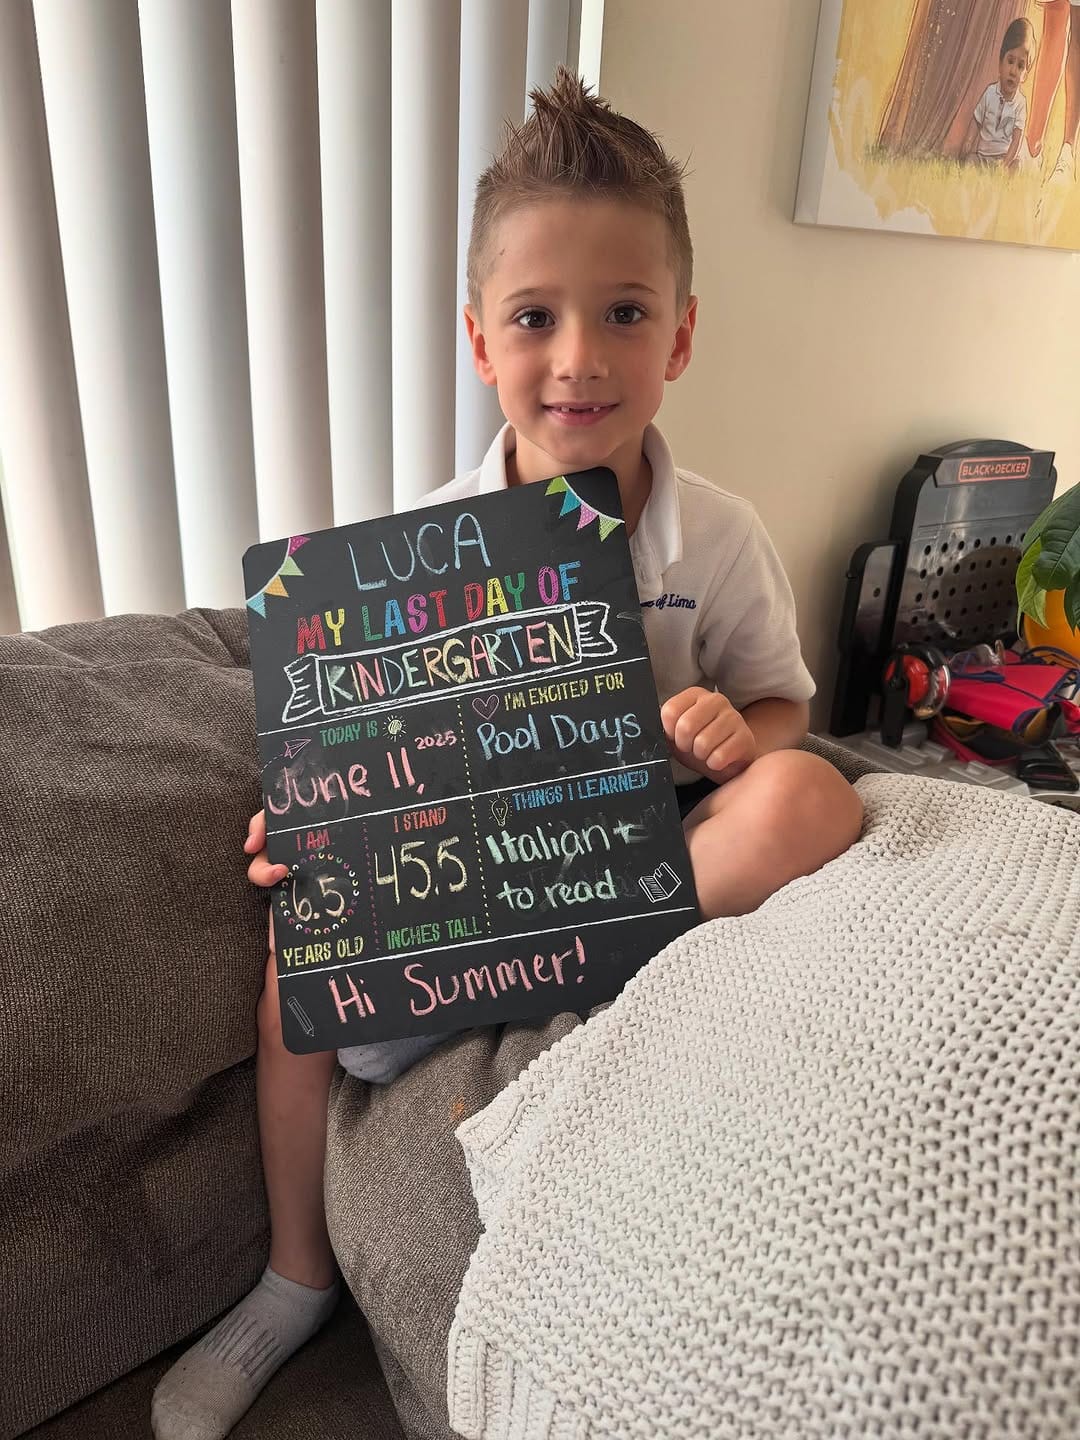 LUCA
MY LAST DAY OF
KINDERGARTEN
TODAY IS
June 11, 2025
I'M EXCITED FOR
Pool Days
I AM
6.5
YEARS OLD
I STAND
45.5
INCHES TALL
THINGS I LEARNED
Italian +
to read
Hi Summer!
of Lima
BLACK+DECKER